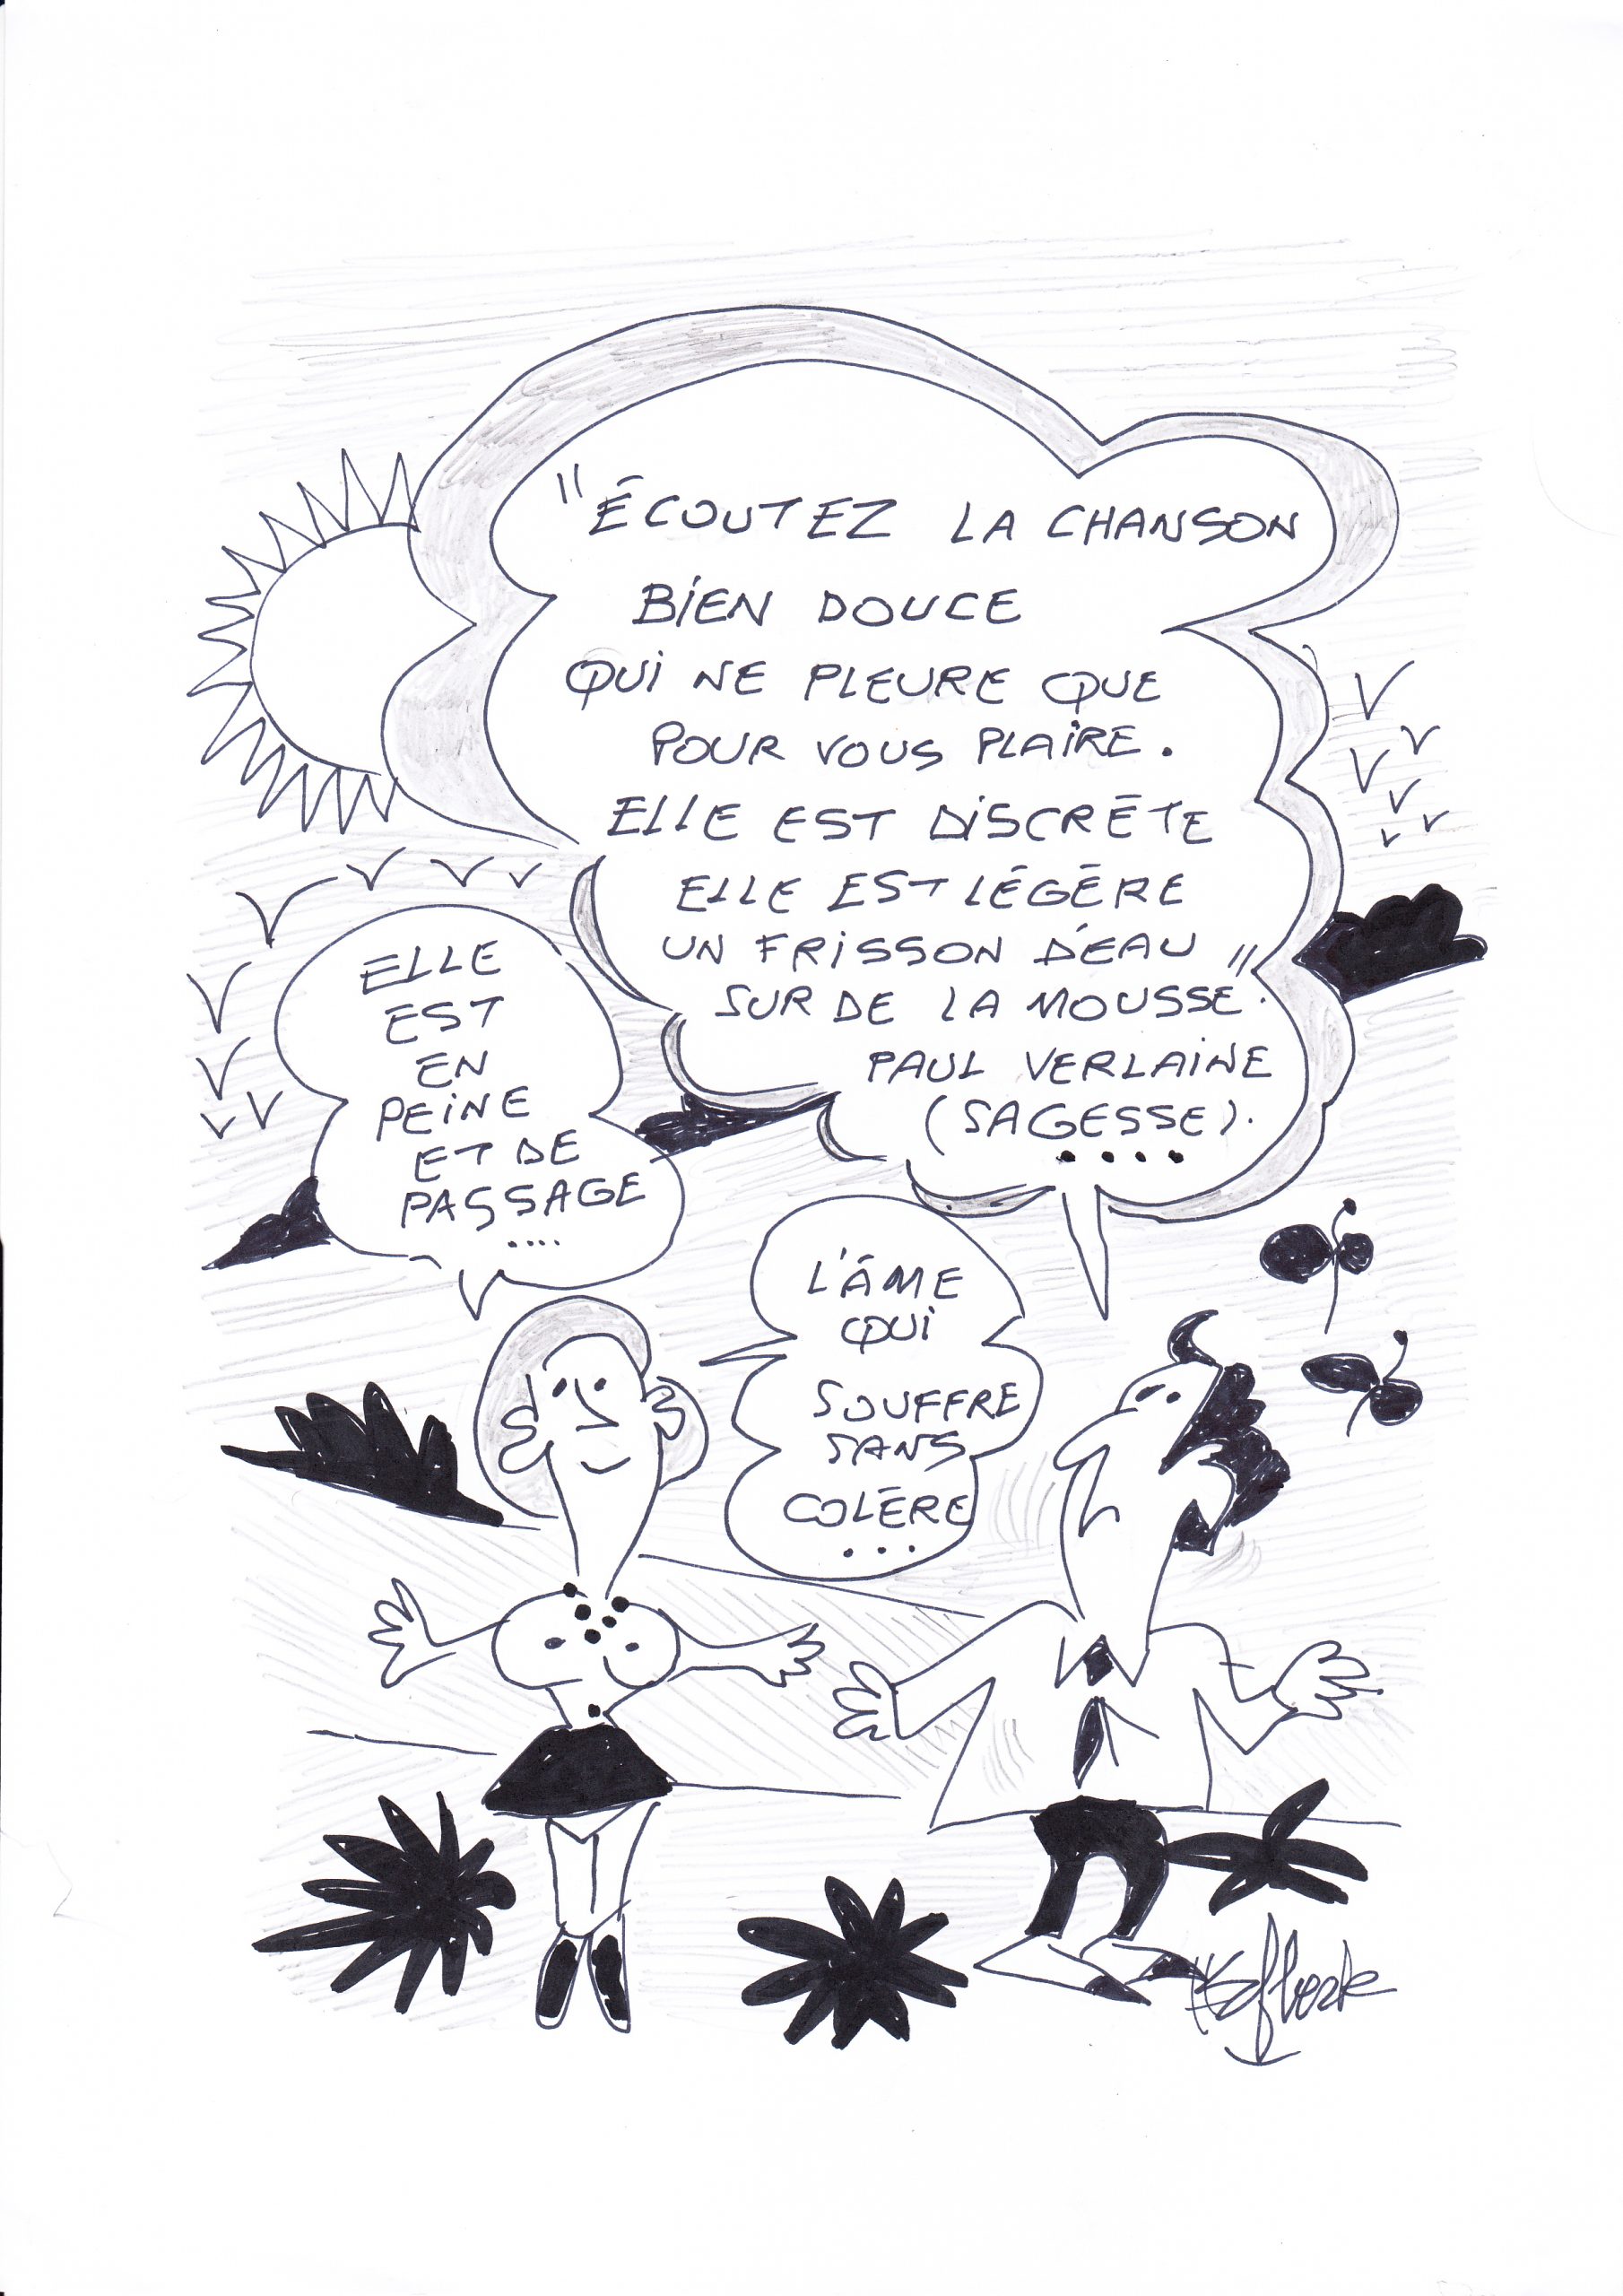 "ÉCOUTEZ LA CHANSON
BIEN DOUCE
QUI NE PLEURE QUE
POUR VOUS PLAIRE.
ELLE EST DISCRÈTE
ELLE EST LÉGÈRE
UN FRISSON D'EAU
SUR DE LA MOUSSE".
PAUL VERLAINE
(SAGESSE).
....
ELLE
EST
EN
PEINE
ET DE
PASSAGE
....
L'ÂME
QUI
SOUFFRE
SANS
COLÈRE
...